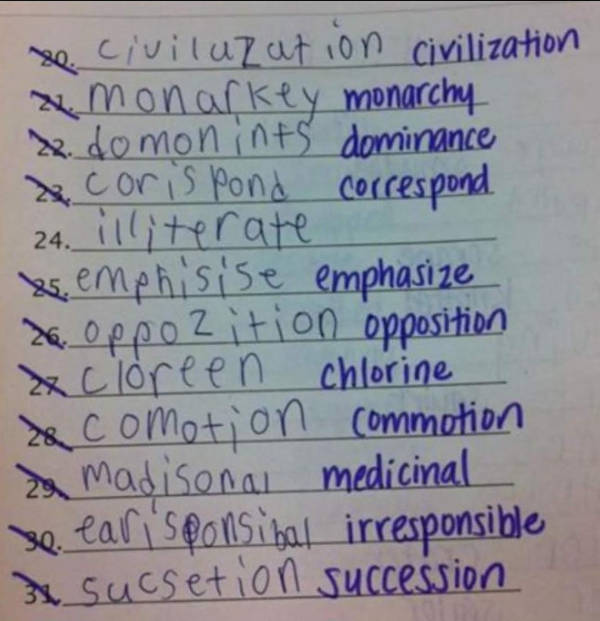 20. civiluzution civilization
21. monarkey monarchy
22. domonints dominance
23. corispond correspond
24. illiterate
25. emphisise emphasize
26. oppozition opposition
27. cloreen chlorine
28. comotion commotion
29. madisonal medicinal
30. earisponsibal irresponsible
31. sucsetion succession